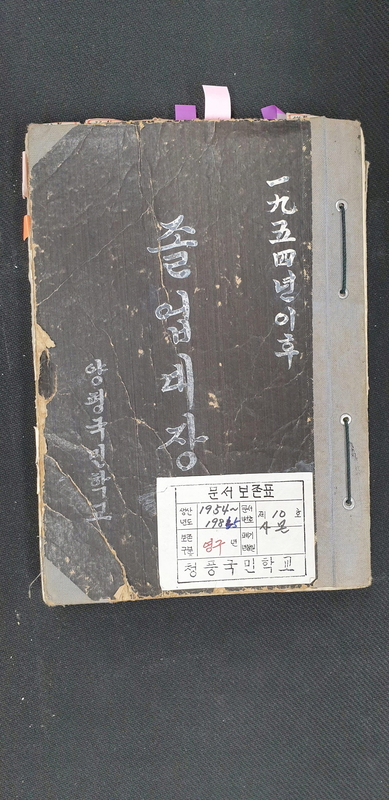 一九五四년이후
졸업대장
양평국민학교
문서보존표
생산년도 1954~1985
문서번호 제 10 호
보존구분 영구 년
폐기 사본
청풍국민학교